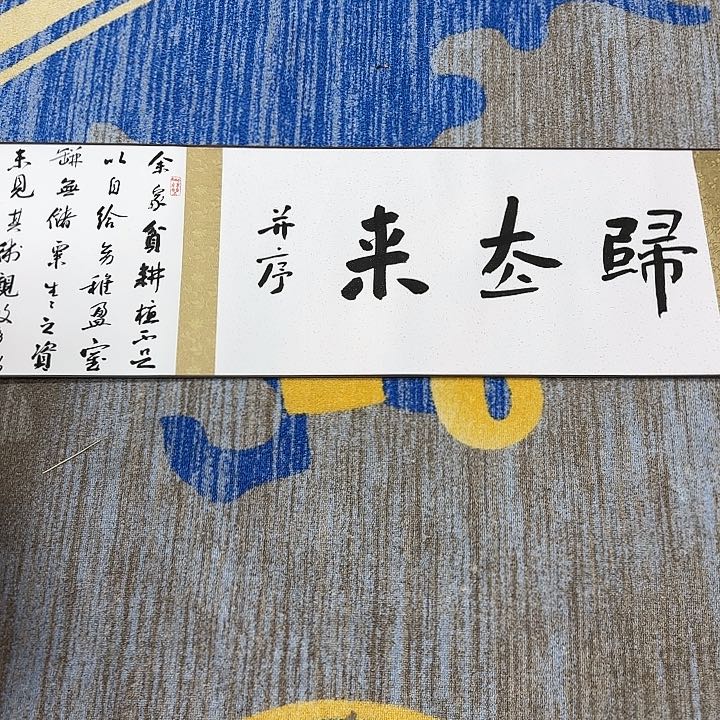 歸去来
并序
余家貧耕植不足
以自給幼稚盈室
缾無儲粟生〻之資
未見其術親故多